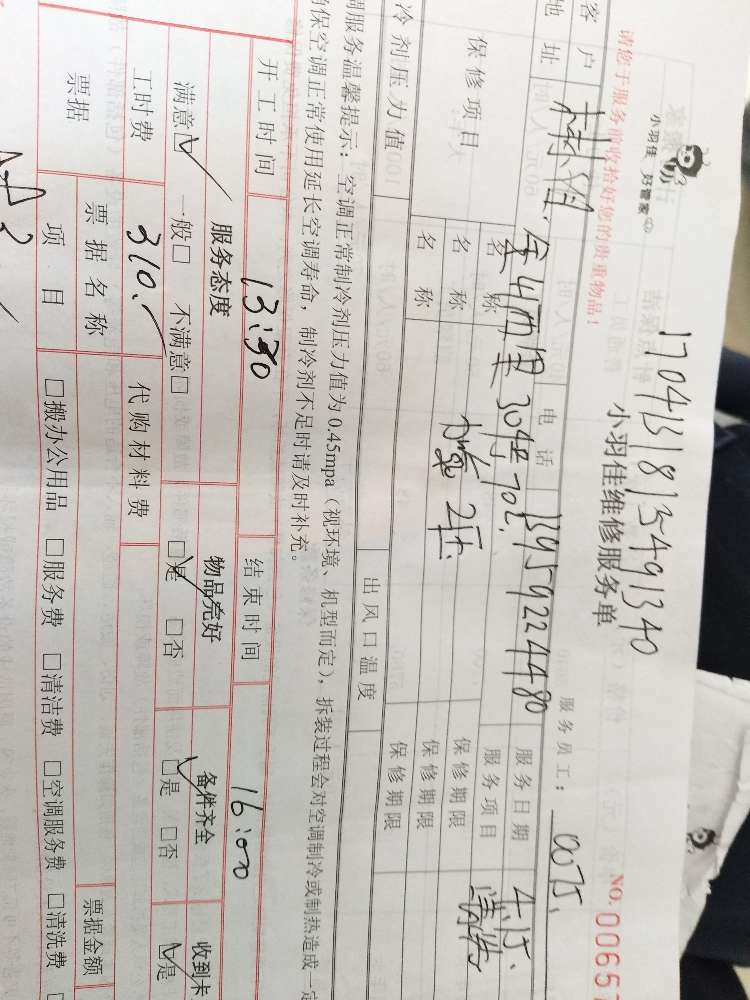 小羽佳 好管家
17041318135491340
小羽佳维修服务单
NO.00657
请您于服务前收拾好您的贵重物品!
服务员工: 0075.
客户
电话 13959224480
服务日期 4.15.
地址 金山西里304号702.
服务项目
保修项目
名称
保修期限
名称 加氨 2压
保修期限
名称
保修期限
冷剂压力值
出风口温度
调服务温馨提示:空调正常制冷剂压力值为0.45mpa(视环境、机型而定),拆装过程会对空调制冷或制热造成一定
确保空调正常使用延长空调寿命,制冷剂不足时请及时补充。
开工时间 13:30 结束时间 16:00
服务态度 物品完好 备件齐全 收到卡
满意☑ 一般□ 不满意□ ☑是 □否 ☑是 □否 ☑是
工时费 310. 代购材料费
票据 票据名称 票据金额
项目 □搬办公用品 □服务费 □清洁费 □空调服务费 □清洗费